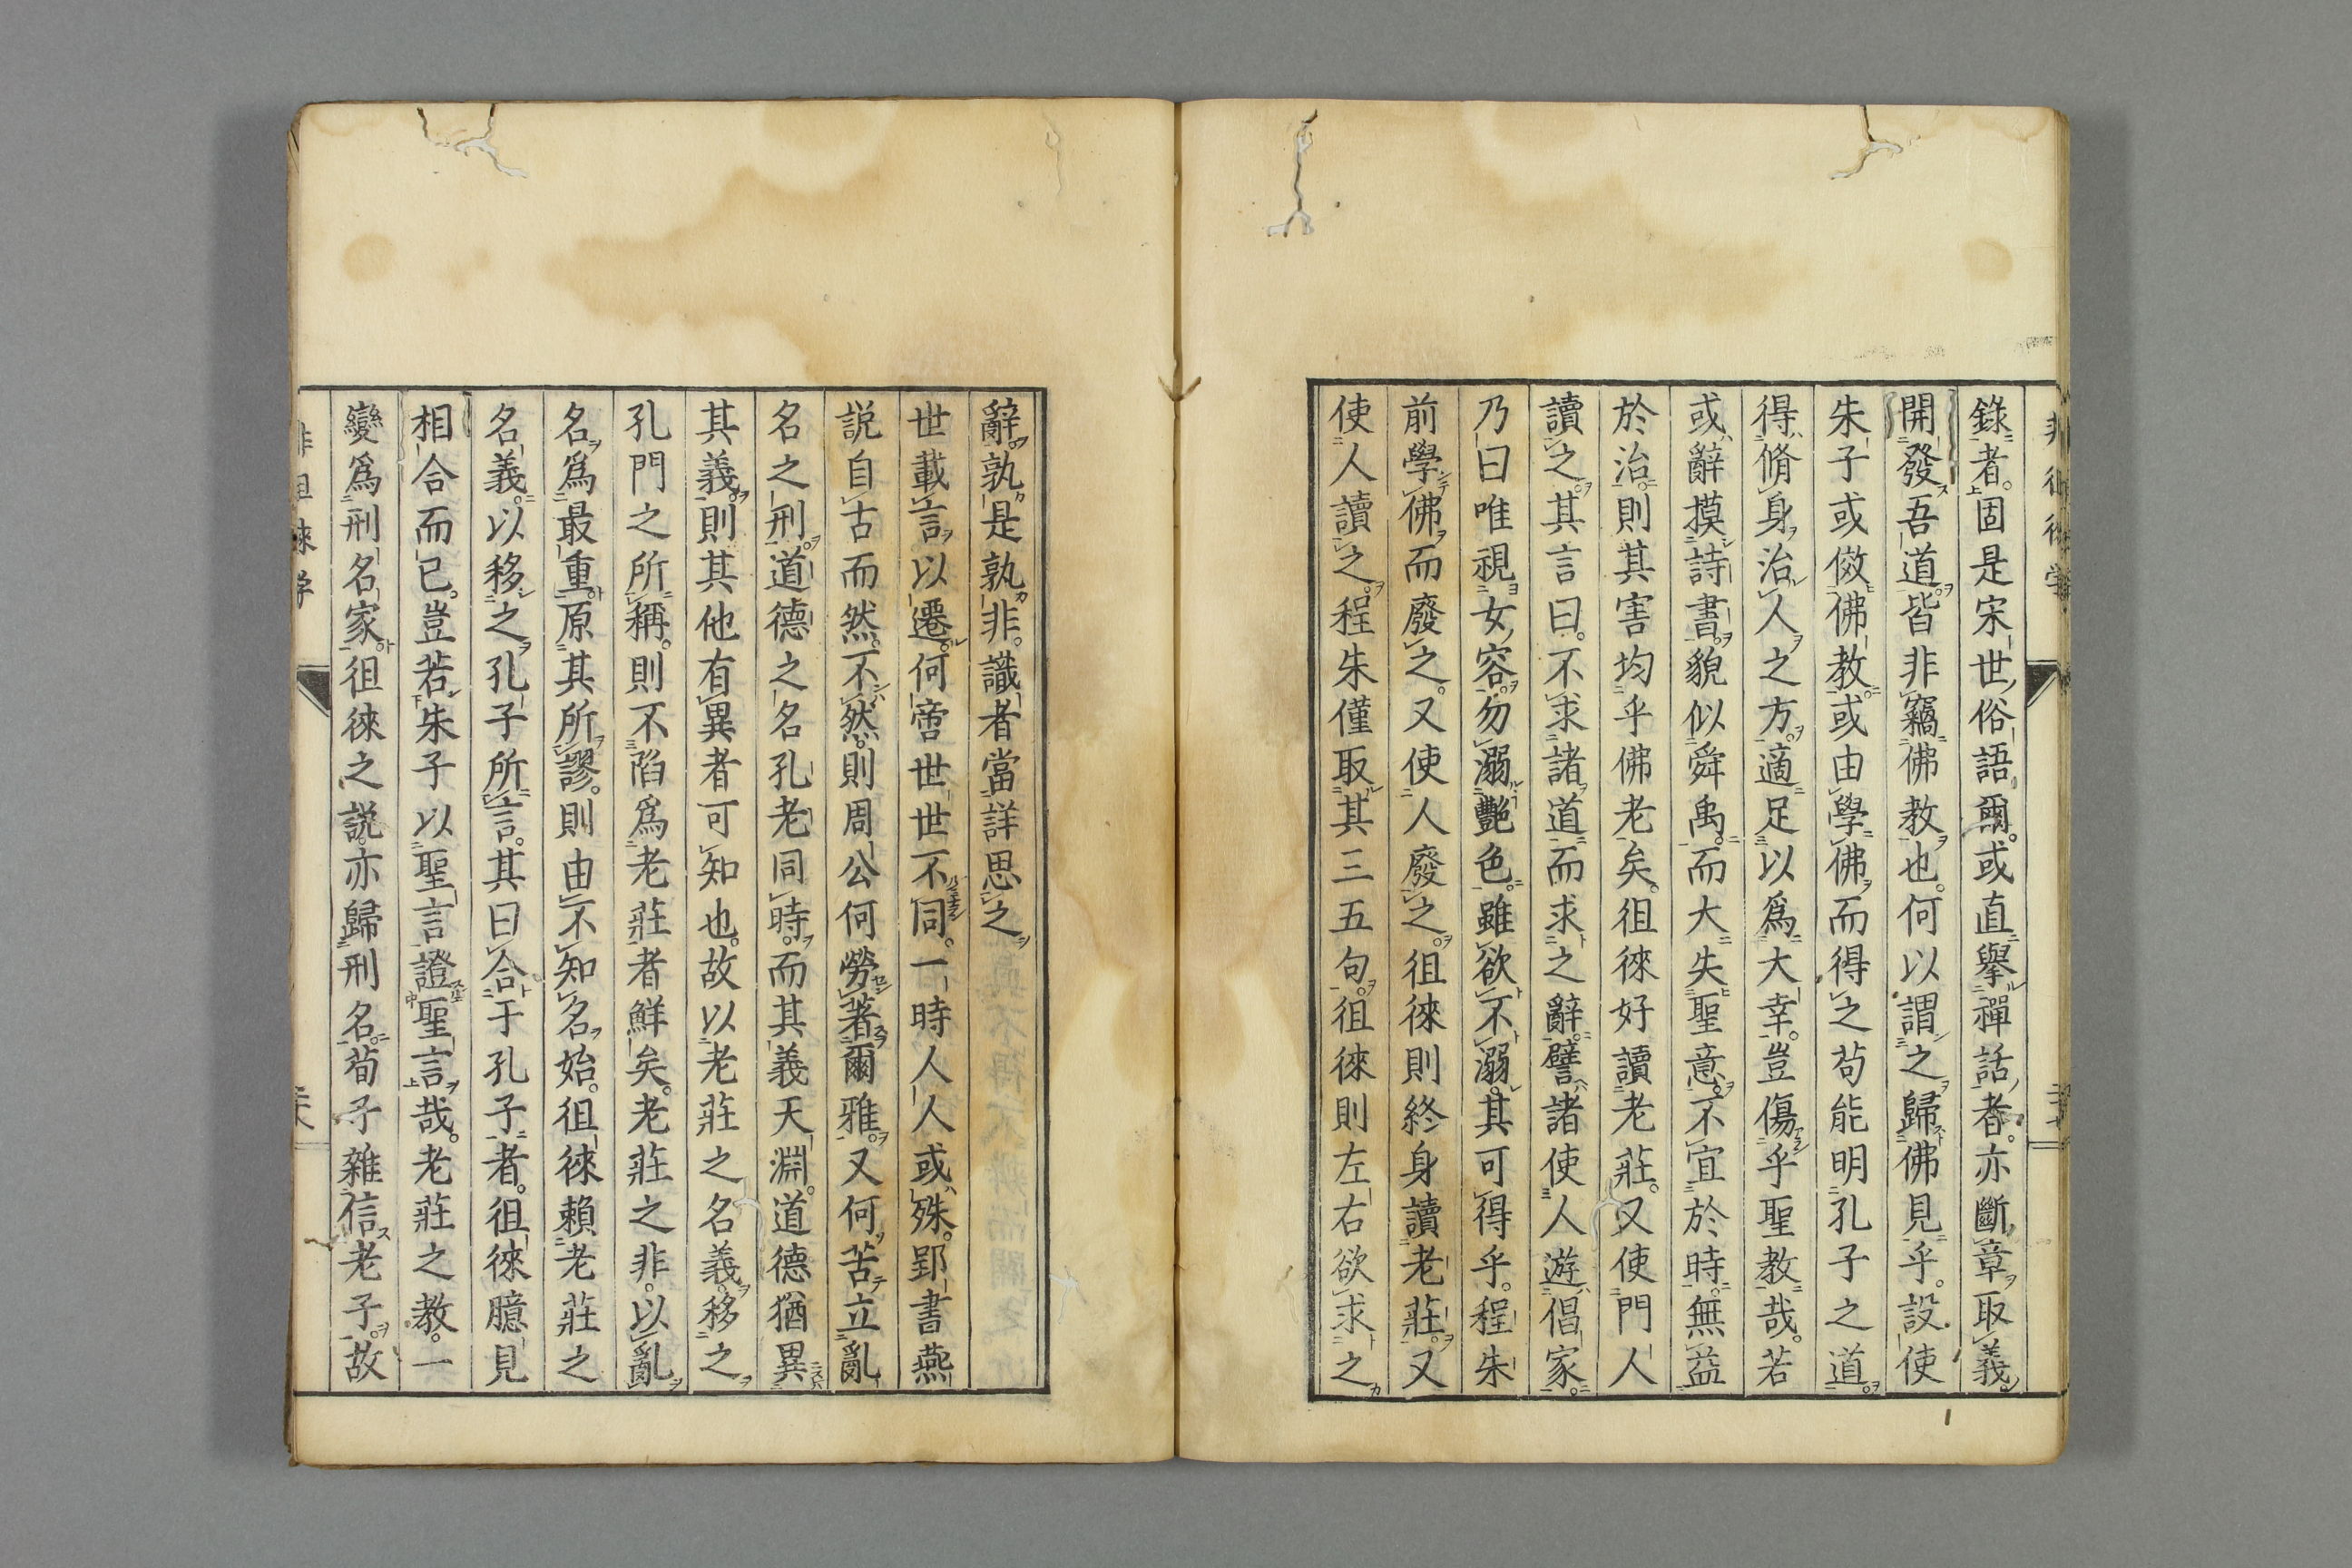 錄者。固是宋世俗語爾。或直擧禪話者。亦斷章取義
開發吾道。皆非竊佛教也。何以謂之歸佛見乎。設使
朱子或倣佛教。或由學佛而得之苟能明孔子之道。
得脩身治人之方。適足以爲大幸。豈傷乎聖教哉。若
或辭摸詩書。貌似舜禹。而大失聖意。不宜於時。無益
於治。則其害均乎佛老矣。徂徠好讀老莊。又使門人
讀之。其言曰。不求諸道而求之辭。譬諸使人遊倡家。
乃曰唯視女容。勿溺艷色。雖欲不溺。其可得乎。程朱
前學佛而廢之。又使人廢之。徂徠則終身讀老莊。又
使人讀之。程朱僅取其三五句。徂徠則左右欲求之
辭。孰是孰非。識者當詳思之
世載言以遷。何啻世世不同。一時人人或殊。郢書燕
説自古而然。不然。則周公何勞著爾雅。又何苦立亂
名之刑。道德之名孔老同時。而其義天淵。道德猶異
其義。則其他有異者可知也。故以老莊之名義。移之
孔門之所稱。則不陷爲老莊者鮮矣。老莊之非。以亂
名爲最重。原其所謬。則由不知名始。徂徠賴老莊之
名義。以移之孔子所言。其曰合于孔子者。徂徠臆見
相合而已。豈若朱子以聖言證聖言哉。老莊之教。一
變爲刑名家。徂徠之説。亦歸刑名。荀子雜信老子。故